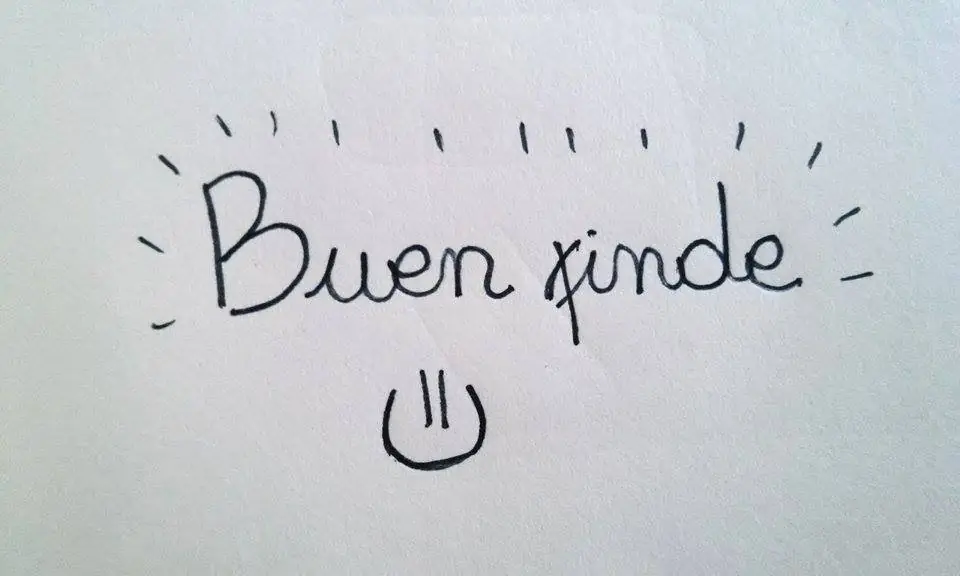 Buen finde